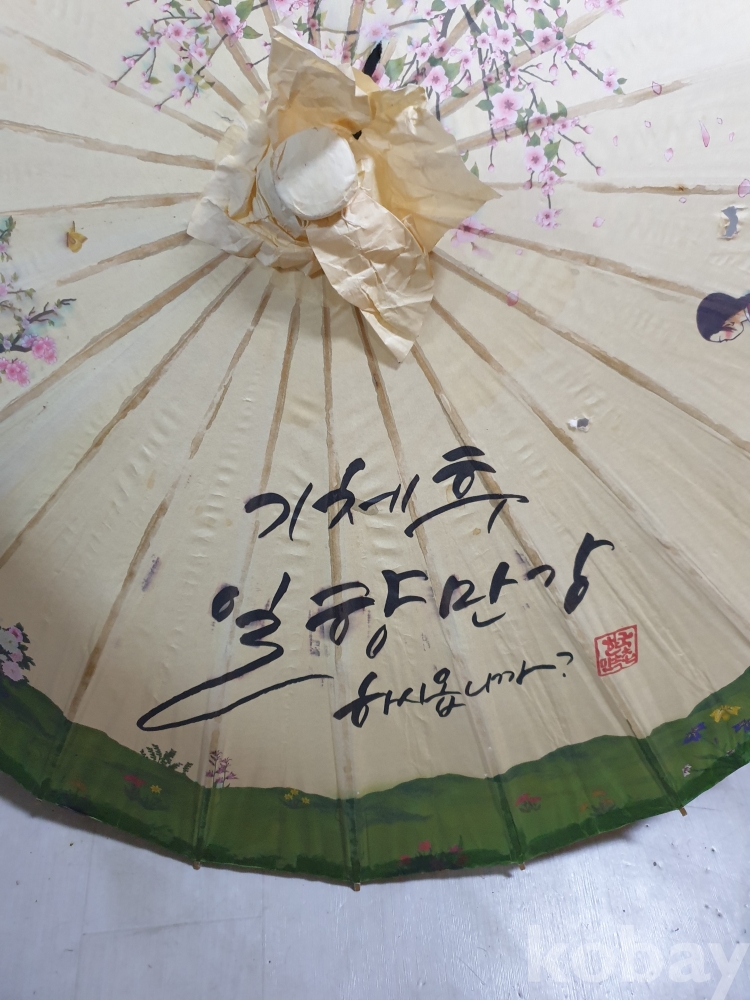 기체후
일향만강
하시옵니까?
kobay